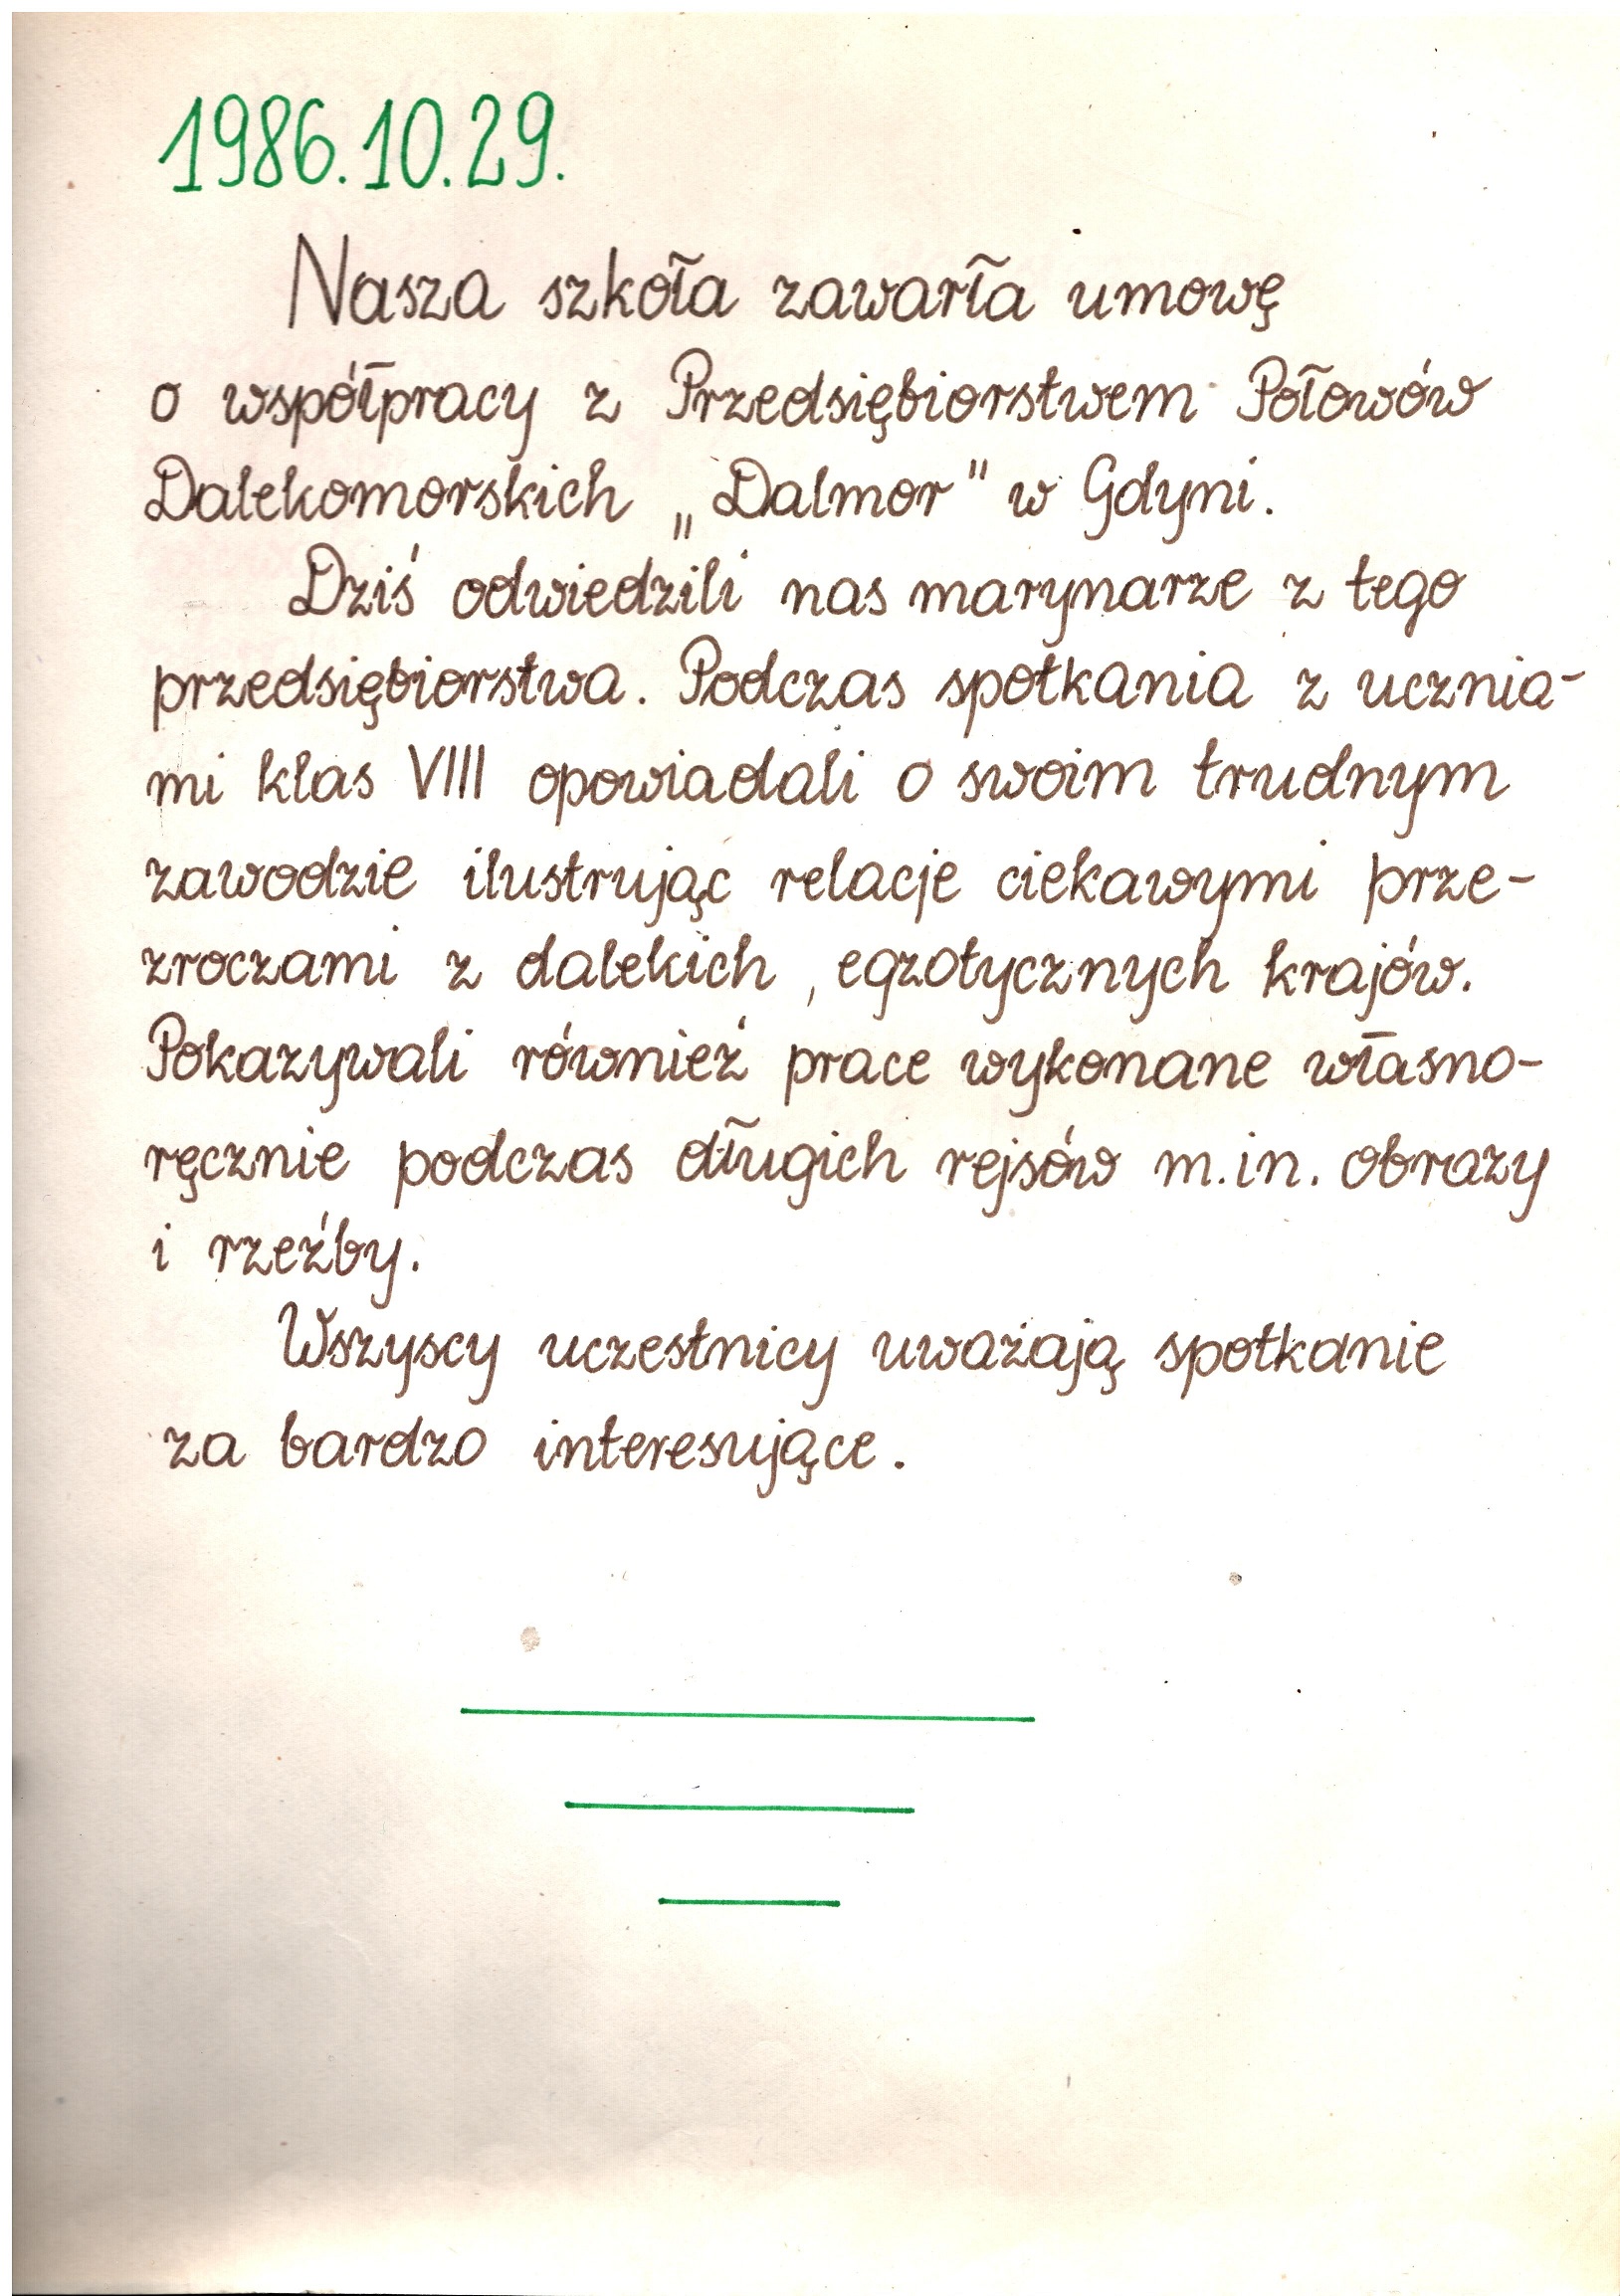 1986.10.29.
Nasza szkoła zawarła umowę
o współpracy z Przedsiębiorstwem Połowów
Dalekomorskich „Dalmor" w Gdyni.
Dziś odwiedzili nas marynarze z tego
przedsiębiorstwa. Podczas spotkania z ucznia-
mi klas VIII opowiadali o swoim trudnym
zawodzie ilustrując relacje ciekawymi prze-
zroczami z dalekich, egzotycznych krajów.
Pokazywali również prace wykonane własno-
ręcznie podczas długich rejsów m.in. obrazy
i rzeźby.
Wszyscy uczestnicy uważają spotkanie
za bardzo interesujące.